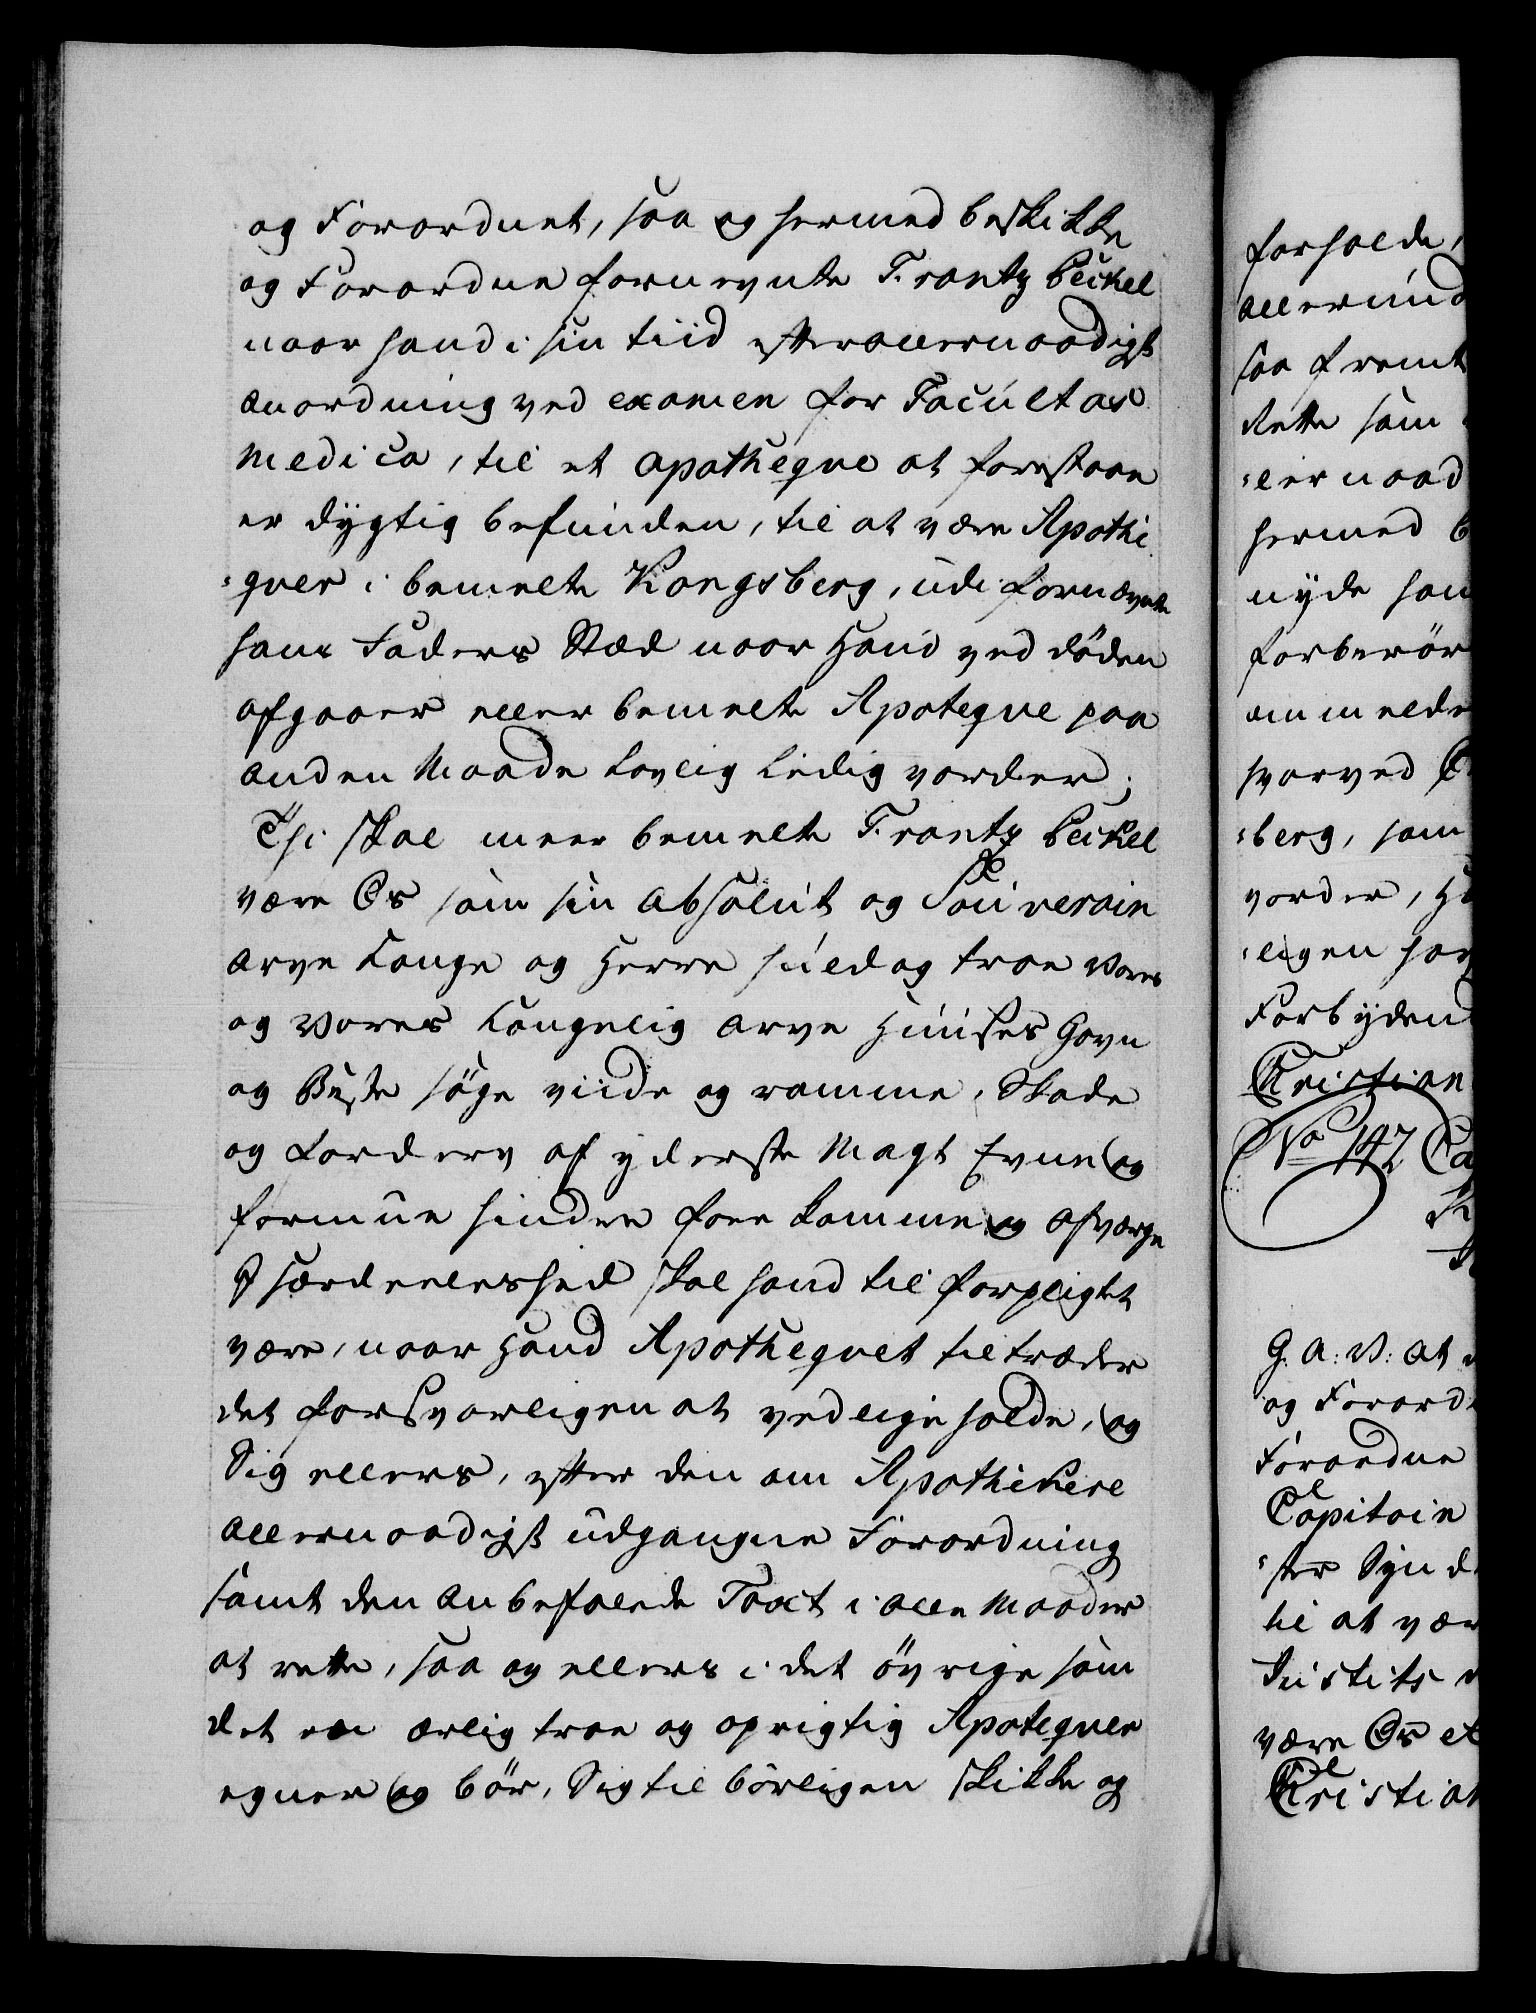 og Forordnet, saa og hermed beskikke
og Forordne fornevnte Frantz Peckel
naar hand i sin tiid effter allernaadigst
anordning ved examen for Facultas
Medica, til et apotheqve at forestaae
er dygtig befunden, til at være Apothe
=qver i bemelte Kongsberg, udi fornævnte
hans Faders Stæd naar Hand ved döden
afgaaer eller bemelte Apoteqve paa
anden Maade Lovlig Ledig vorder;
Thi skal meer bemelte Frantz Peckel
være Os som sin absolut og Souverain
arve Konge og Herre huld og troe Vores
og Vores Kongelig arve Huuses Gavn
og Beste söge viide og ramme, Skade
og Forderv af yderste Magt Evne og
formue hindre forekomme og afværge
I særdeelished skal hand til forpligtet
være, naar Hand Apotheqvet tiltræder
det forsvarligen at vedligeholde, og
Sig ellers, effter den om Apothekere
allernaadigst udgangne Forordning
samt den anbefalede Taxt i alle Maader
at rette, saa og ellers i det övrige som
det en ærlig troe og oprigtig Apoteqver
egner og bör, Sig tilbörligen skikke og
forholde,
allerund
saa fremt
dette som
=lernaad
hermed b
nyde han
forberör
ommelde
svorved
=berg, som
vorder, H
=ligen for
Forbydend
Christian
No 142 Ca
G: A: V: at
og Forord
Forordne
Capitain
=ster Synd
til at vær
Justits
være Os et
Christian